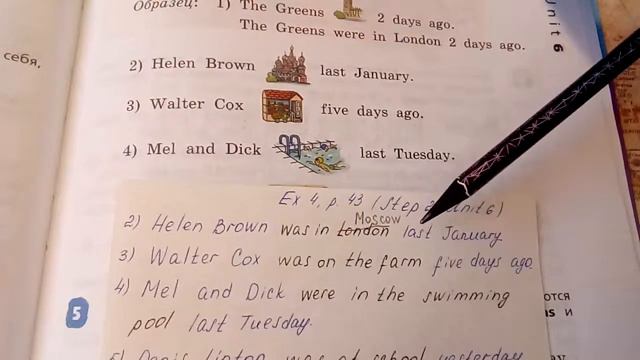 Образец: 1) The Greens 2 days ago.
The Greens were in London 2 days ago.
Unit 6
себя,
2) Helen Brown last January.
3) Walter Cox five days ago.
4) Mel and Dick last Tuesday.
Ex 4, p. 43 (Step 6)
Moscow
2) Helen Brown was in London last January.
3) Walter Cox was on the farm five days ago.
4) Mel and Dick were in the swimming
pool last Tuesday.
5
5) Denis Linton was at school yesterday